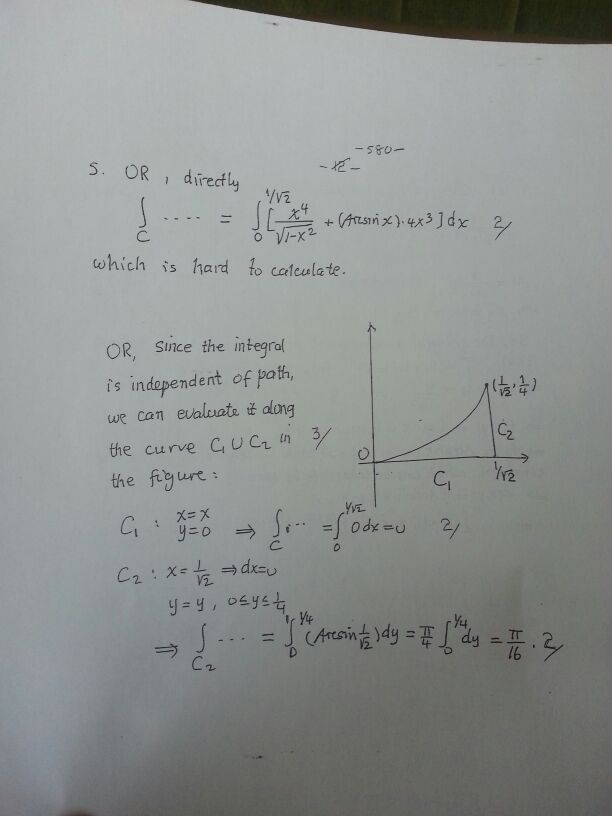 -580-
-12-
5. OR, directly
∫_C .... = ∫_0^{1/√2} [ x⁴/√(1-x²) + (Arcsin x).4x³ ] dx 2/
which is hard to calculate.
OR, since the integral
is independent of path,
we can evaluate it along
the curve C₁ ∪ C₂ in 3/
the figure:
(1/√2, 1/4)
C₂
O
C₁
1/√2
C₁ : x=x
y=0 ⇒ ∫_C ... = ∫_0^{1/√2} 0 dx = 0 2/
C₂ : x = 1/√2 ⇒ dx=0
y=y, 0≤y≤1/4
⇒ ∫_{C₂} ... = ∫_0^{1/4} (Arcsin 1/√2) dy = π/4 ∫_0^{1/4} dy = π/16 . 2/